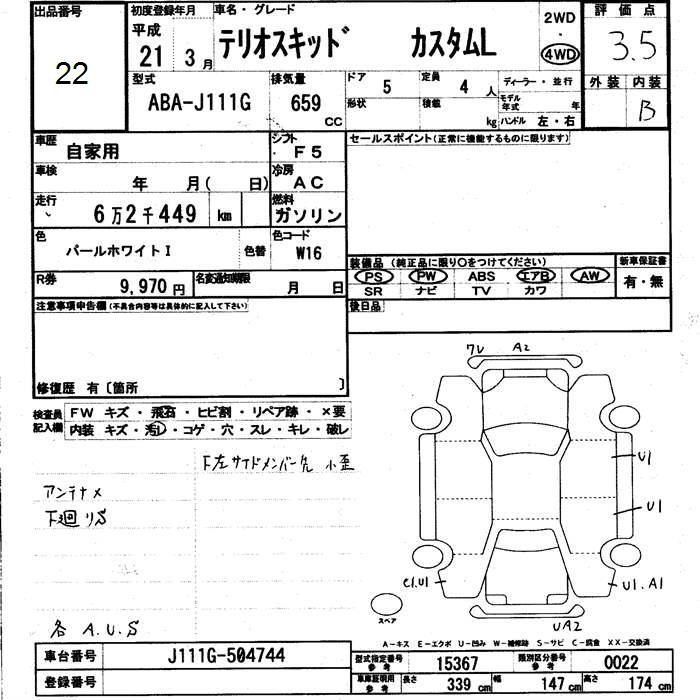 出品番号
22
初度登録年月
平成
21 3月
車名・グレード
テリオスキッド カスタムL
2WD
・
4WD
評価点
3.5
外装 内装
B
型式
ABA-J111G
排気量
659
CC
ドア 5
形状
定員 4 人
積載 kg
ディーラー・並行
モデル年式 年
ハンドル 左・右
車歴
自家用
シフト
F5
車検
年 月( 日)
冷房
AC
走行
6万2千449 km
燃料
ガソリン
色
パールホワイトI
色替
色コード
W16
R券
9,970円
名変通知期限
月 日
セールスポイント(正常に機能するものに限ります)
装備品 (純正品に限り○をつけてください)
PS PW ABS エアB AW
SR ナビ TV カワ
新車保証書
有・無
後日品
注意事項申告欄(不具合内容等は具体的に記入して下さい)
修復歴 有〔箇所 〕
検査員記入欄
FW キズ・飛石・ヒビ割・リペア跡・×要
内装 キズ・汚レ・コゲ・穴・スレ・キレ・破レ
下左サイドメンバー先 小歪
アンテナ×
下廻りS
各 A.U.S
7V A2
U1
U1
C1.U1
U1.A1
UA2
スペア
A-キズ E-エクボ U-凹み W-補修跡 S-サビ C-腐食 XX-交換済
車台番号 J111G-504744
登録番号
型式指定番号参考 15367
類別区分番号参考 0022
車庫証明用参考 長さ 339cm 幅 147cm 高さ 174cm